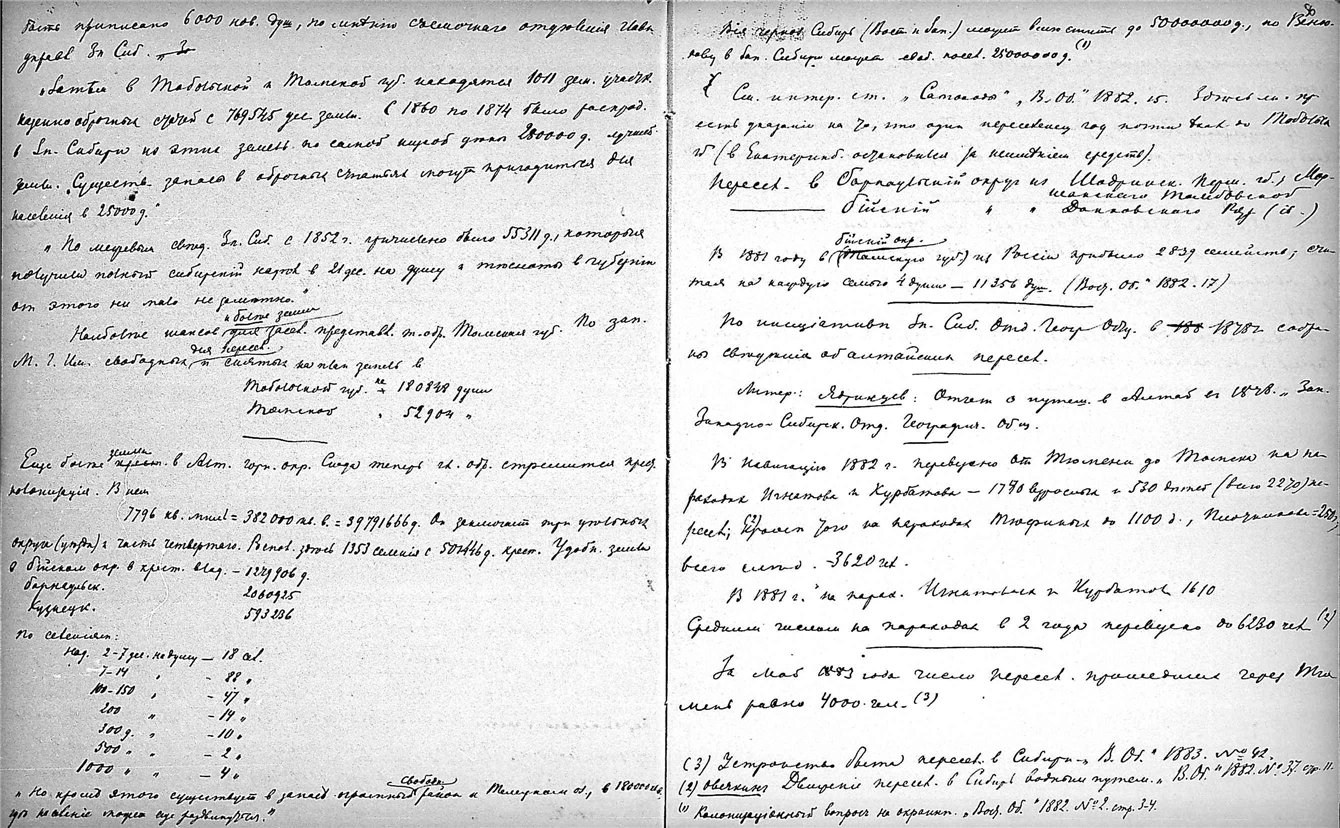 быть приписано 6000 нов. душ, по мнѣнію съемочнаго отдѣленія Главн.
управл. Зп. Сиб.
„Затѣм в Тобольской и Томской губ. находятся 1011 зем. участк.
казеннооброчных статей с 769545 дес. земли. С 1860 по 1874 было распрод.
в Зп. Сибири из этих земель по самой низкой цѣнѣ 280000 д. лучшей
земли. Существ. запасы в оброчных статьях могут пригодиться для
населенія в 25000 д."
„По межевым свѣд. Зп. Сиб. с 1852 г. причислено было 55311 д., которыя
получили полный сибирскій надѣл в 21 дес. на душу и тѣсноты в губерніи
от этого ни мало не замѣтно."
и болѣе земли
Наиболѣе шансов для засел. представл. гл. обр. Томская губ. По зап.
для пересел.
М. Г. Им. свободных и снятых на план земель в
Тобольской губ. на 180848 души
Томской " 52904 "
земли
Еще болѣе в Алт. горн. окр. Сюда теперь гл. обр. стремится
колонизація. В нем
7796 кв. миль = 382000 кв. в. = 39791666 д. Он заключает три цѣльных
округа (уѣзда) и часть четвертаго. В нем здѣсь 1353 селенія с крест. Удобн. земли
в бійском окр. в крест. влад. – 1279906 д.
барнаульск. 2060925
Кузнецк. 593236
По селеніям:
Над. 2–7 дес. на душу – 18 сел.
7–14 " – 88 "
100–150 " – 47 "
200 " – 14 "
300 д. " – 10 "
500 " " – 2 "
1000 " " – 4 "
свободн.
„Но кромѣ этого существует в запасѣ огромный район в
гдѣ населеніе может еще раздвинуться."
80
Вся черноз. Сибирь (Вост. и Зап.) может вмѣстить до 50000000 д., по Веню-
кову в Зап. Сибири может своб. посел. 25000000 д. (1)
См. интер. ст. „Самоходы" „В. Об." 1882. 15. Здѣсь
есть указаніе на то, что один переселенец год почти ѣхал до Тобольск.
гб (в Екатеринб. остановился за неимѣніем средств).
Пересел. в барнаульскій округ из Шадринск. Перм. гб., Мор-
шанскаго Тамбовской
бійскій " " Данковскаго Ряз. (ib.)
бійскій окр.
В 1881 году в (Томскую губ.) из Россіи прибыло 2839 семейств, счи-
тая на каждую семью 4 души – 11356 душ. (Вост. Об." 1882. 17)
По иниціативѣ Зп. Сиб. Отд. Геогр. Общ. в 188 1878 г. собра-
ны свѣдѣнія об алтайских пересел.
Литер.: Ядринцев: Отчет о путеш. в Алтай в 1878. „Зап.
Западно-Сибирск. Отд. Географич. Общ.
В навигацію 1882 г. перевезено от Тюмени до Томска на па-
роходах Игнатова и Курбатова – 1740 взрослых и 530 дѣтей (всего 2270) пе-
ресел; (2) кромѣ того на пароходах Тюфиных до 1100 д., Плотникова – 250,
всего слѣд. – 3620 чел.
В 1881 г. на парох. Игнатова и Курбатов 1610
Средним числом на пароходах в 2 года перевезено до 6230 чел (2)
За май 1883 года число пересел. прошедших через Тю-
мень равно 4000 чел. (3)
(3) Устройство быта пересел. в Сибири. „В. Об." 1883. № 42.
(2) Овечкин: Движеніе пересел. в Сибирь водным путем. „В. Об." 1882. № 37. стр. 11.
(1) Колонизаціонный вопрос на окраинѣ. „Вост. Об." 1882. № 2. стр. 3-4.